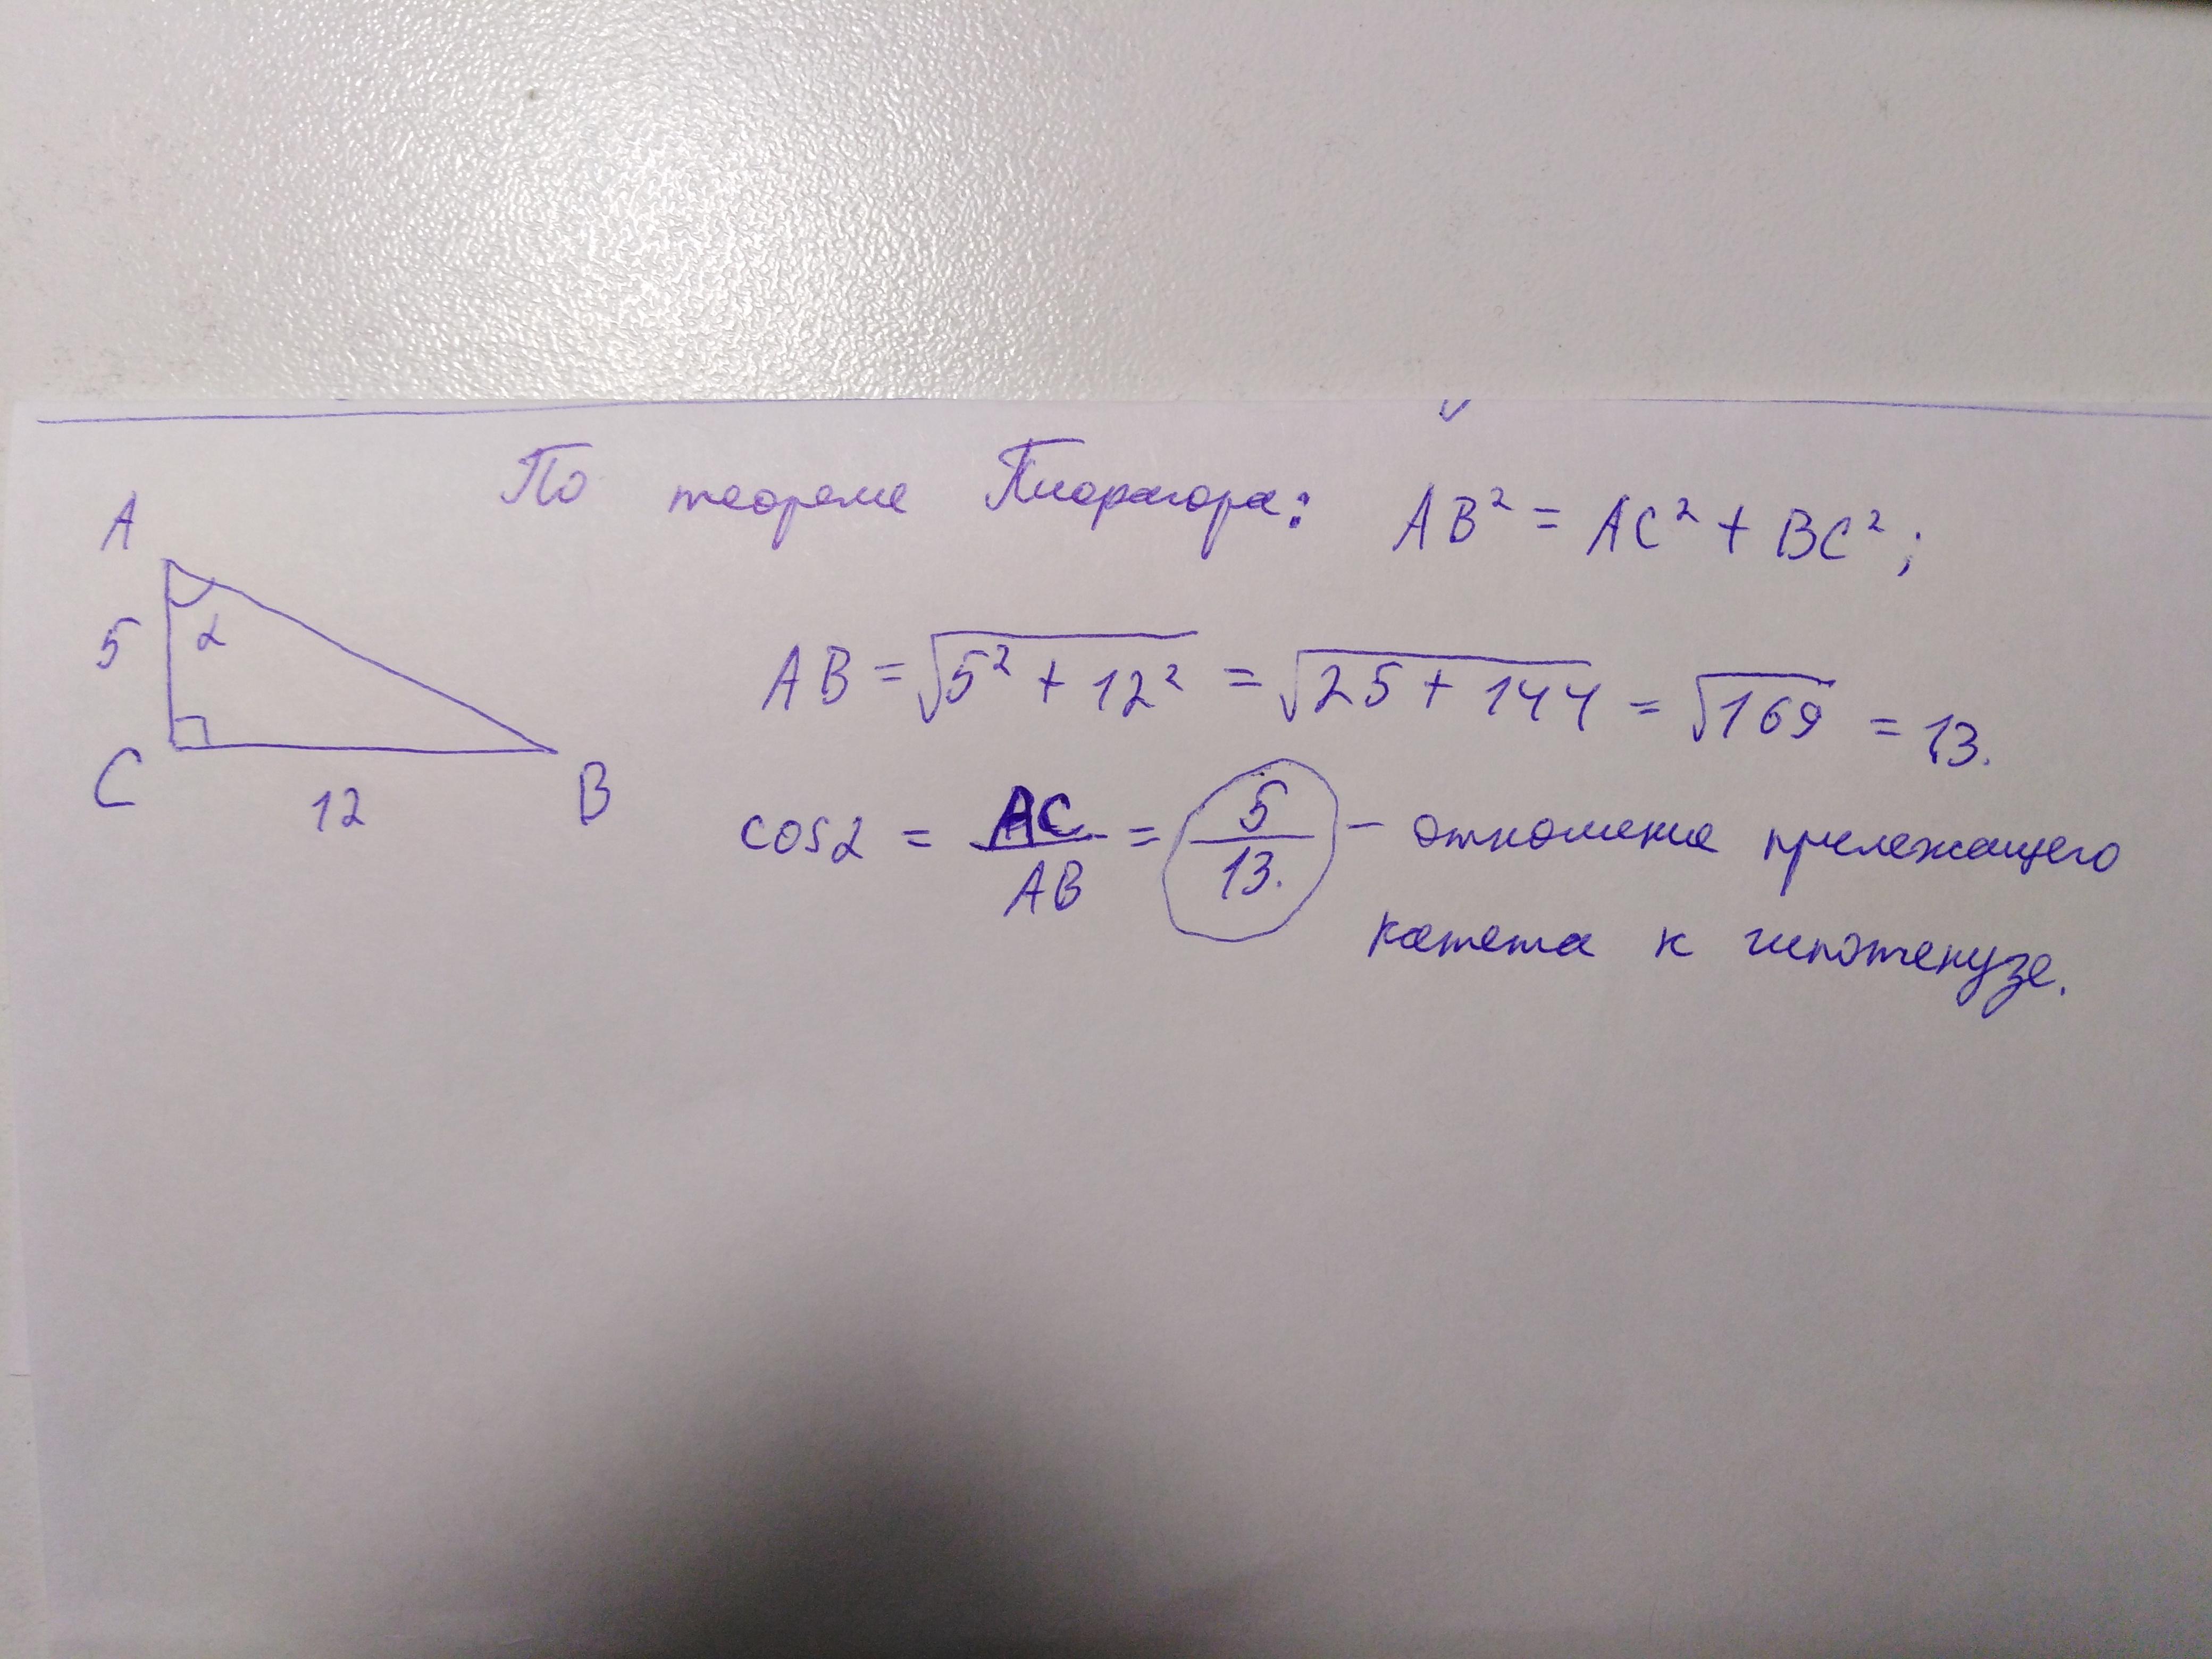 По теореме Пиорагора: AB² = AC² + BC²;
A
5 α
C 12 B
AB = √5² + 12² = √25 + 144 = √169 = 13.
cosα = AC/AB = 5/13. – отношение прилежащего
катета к гипотенузе.